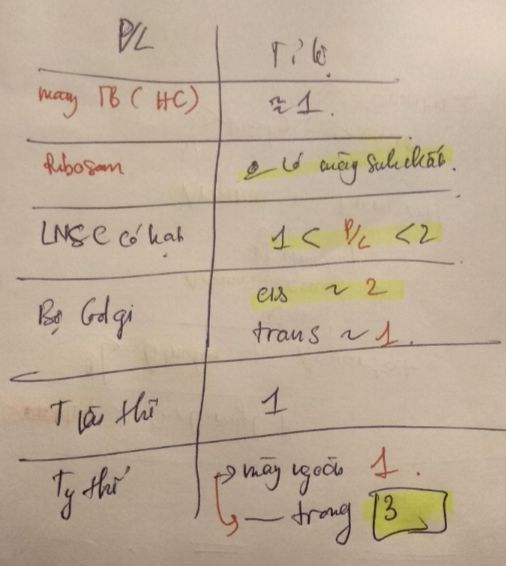 P/L Tỉ lệ
màng TB (HC) ≈ 1.
Ribosom có màng sinh chất.
LNSC có hạt 1 < P/L < 2
Bộ Golgi cis ~ 2
trans ~ 1.
thể 1
Ty thể → màng ngoài 1.
→ — trong 3